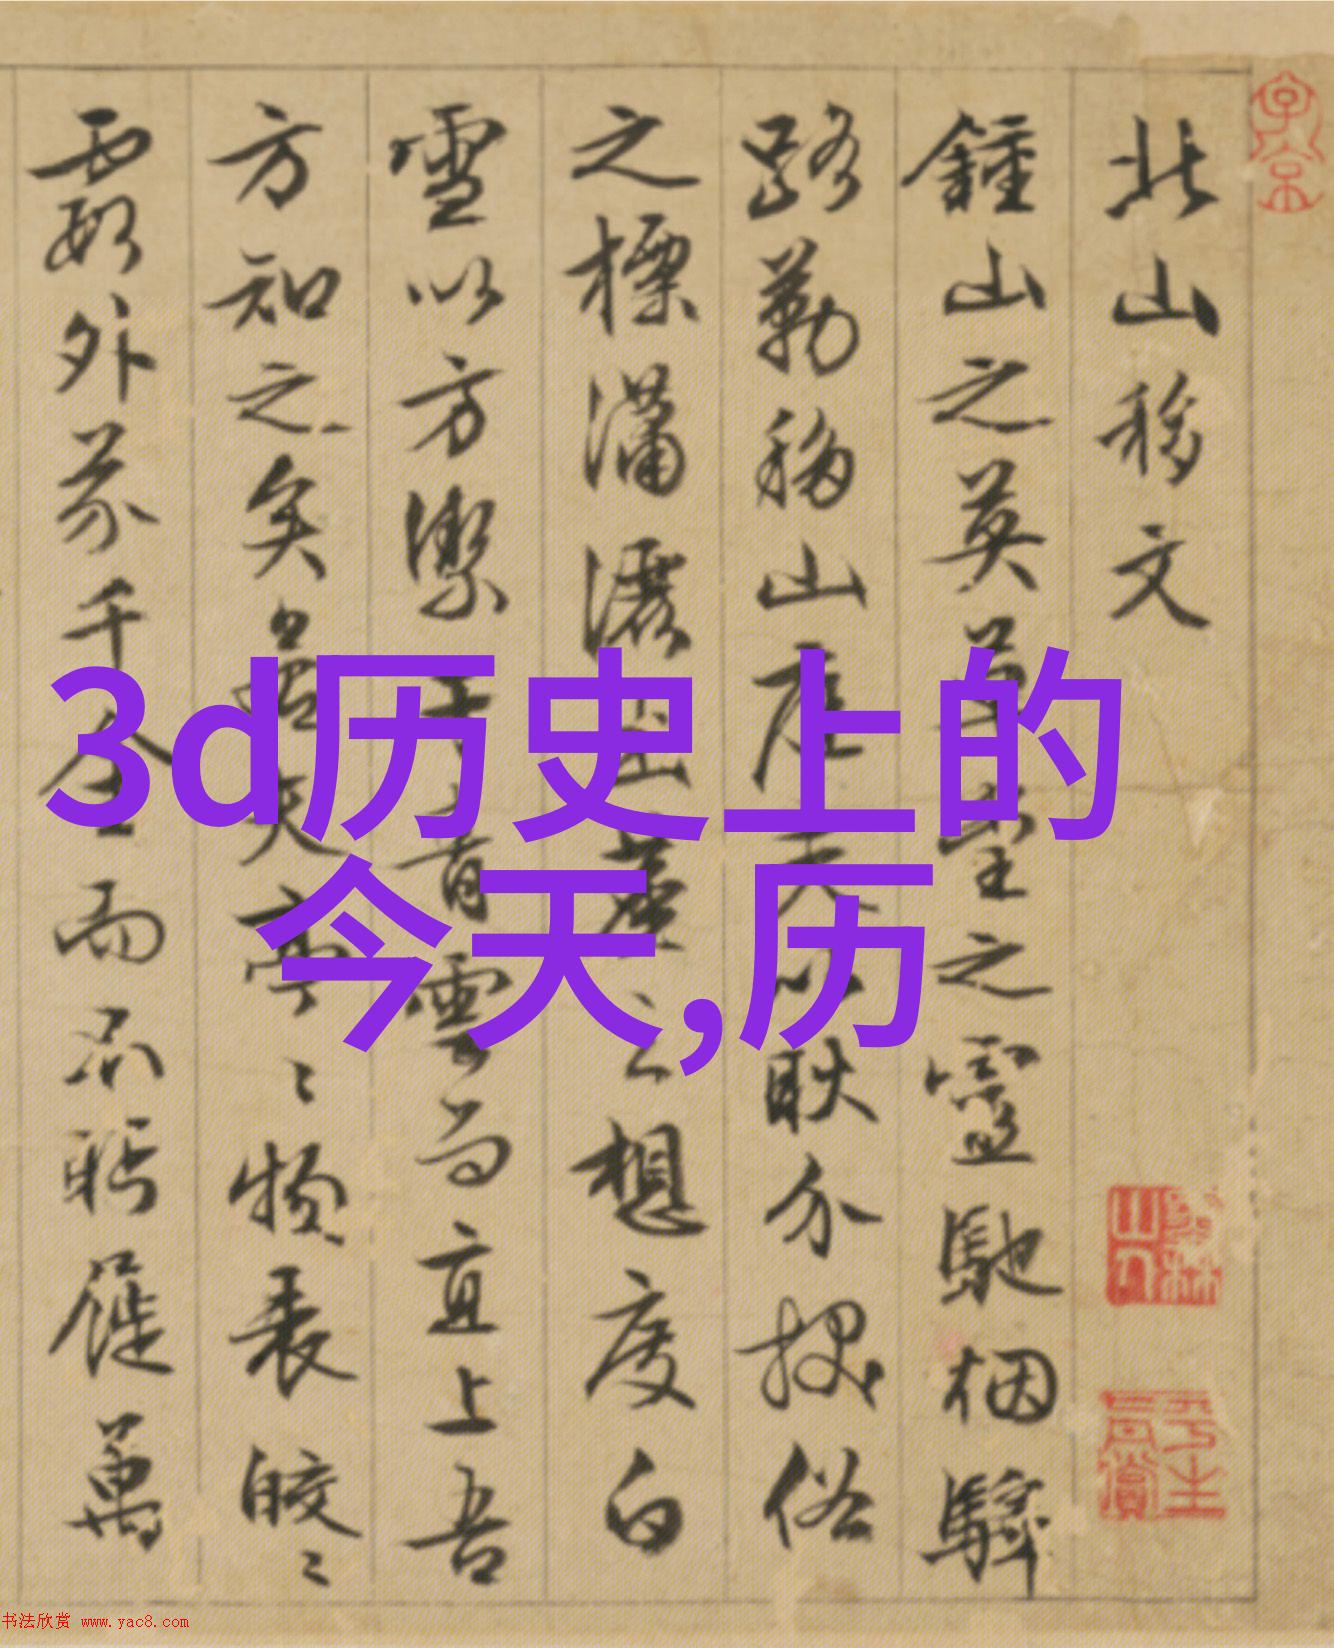 北山移文
鍾山之英草堂之靈馳烟驛
路勒移山庭夫以耿介拔俗
之標瀟灑出塵之想度白
雪以方潔干青雲而直上吾
方知之矣若夫亭〻物表皎〻
霞外芥千金而不盻屣萬
3d历史上的
今天,历
子京
平生真賞
书法欣赏 www.yac8.com